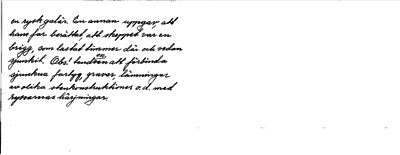 en rysk galär. En annan uppgav, att
hans far berättat, att skeppet var en
brigg, som lastat timmer där och sedan
sjunkit. Obs! tendensen att förbinda
sjunkna fartyg, graver, lämningar
av olika stenkonstruktioner o.d. med
ryssarnas härjningar.